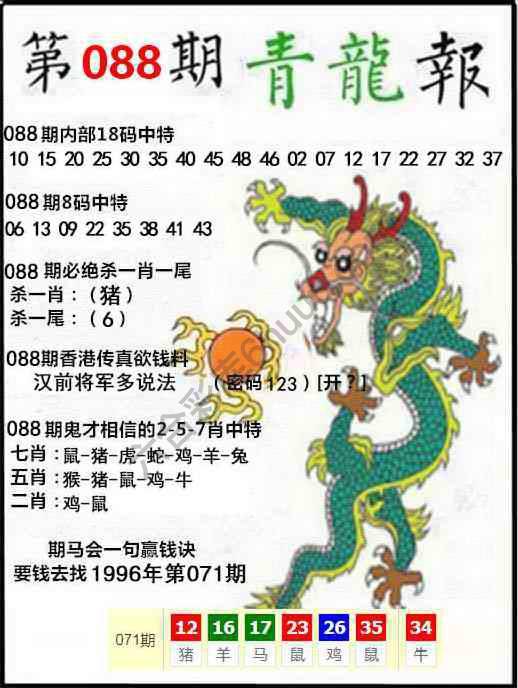 第088期 青龍報
088期内部18码中特
10 15 20 25 30 35 40 45 48 46 02 07 12 17 22 27 32 37
088期8码中特
06 13 09 22 35 38 41 43
088 期必绝杀一肖一尾
杀一肖：（猪）
杀一尾：（6）
088期香港传真欲钱料
汉前将军多说法 （密码123）[开？]
088期鬼才相信的2-5-7肖中特
七肖：鼠-猪-虎-蛇-鸡-羊-兔
五肖：猴-猪-鼠-鸡-牛
二肖：鸡-鼠
期马会一句赢钱诀
要钱去找1996年第071期
071期 12 16 17 23 26 35 34
猪 羊 马 鼠 鸡 鼠 牛